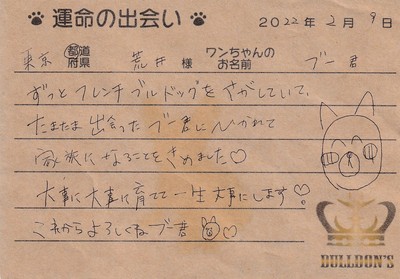 運命の出会い
2022年2月9日
東京 都道府県 荒井様 ワンちゃんのお名前 ブー君
ずっとフレンチブルドッグをさがしていて、
たまたま出会ったブー君に心ひかれて
家族になることをきめました♡
大事に大事に育てて一生大事にします♡
これからよろしくねブー君♡
BULLDON'S